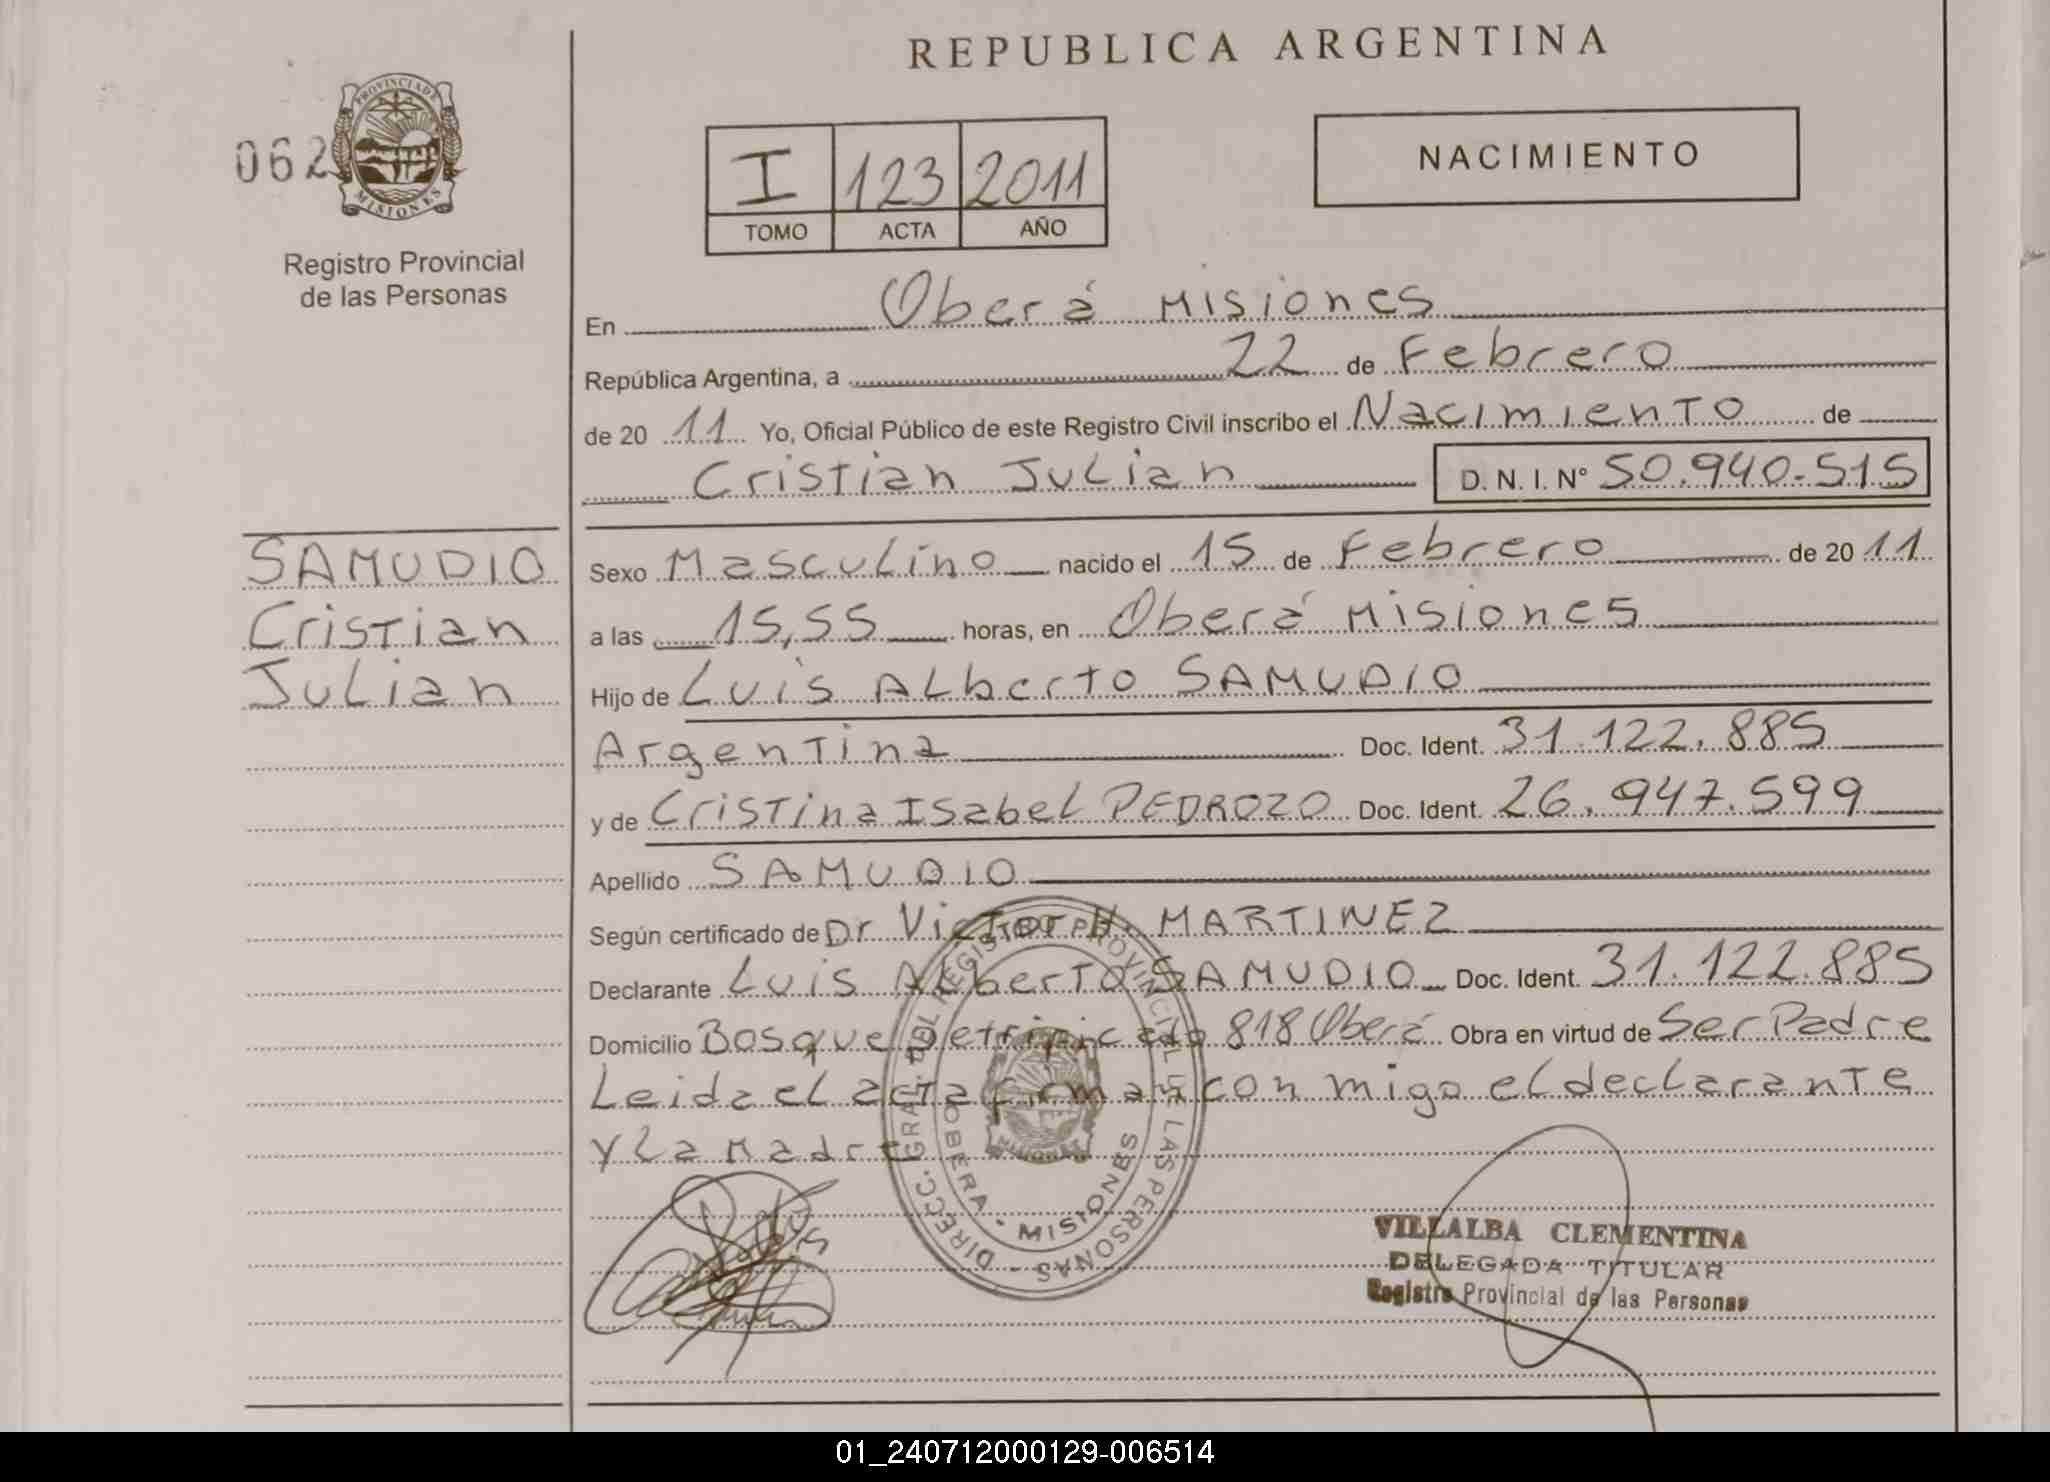 REPUBLICA ARGENTINA
062
PROVINCIA DE
MISIONES
Registro Provincial
de las Personas
I 123 2011
TOMO ACTA AÑO
NACIMIENTO
En Oberá Misiones
República Argentina, a 22 de Febrero
de 20 11 Yo, Oficial Público de este Registro Civil inscribo el Nacimiento de
Cristian Julian D. N. I. N° 50.940.515
SAMUDIO
Cristian
Julian
Sexo Masculino nacido el 15 de Febrero de 20 11
a las 15,55 horas, en Oberá Misiones
Hijo de Luis Alberto SAMUDIO
Argentina Doc. Ident. 31.122.885
y de Cristina Isabel PEDROZO Doc. Ident. 26.947.599
Apellido SAMUDIO
Según certificado de Dr Victor H. MARTINEZ
Declarante Luis Alberto SAMUDIO Doc. Ident. 31.122.885
Domicilio Bosque Petrificado 818 Oberá Obra en virtud de Ser Padre
Leida el acta firman con migo el declarante
y la Madre
DIRECC. GRAL. DEL REGISTRO PROVINCIAL DE LAS PERSONAS -
OBERA - MISIONES
VILLALBA CLEMENTINA
DELEGADA TITULAR
Registro Provincial de las Personas
01_240712000129-006514